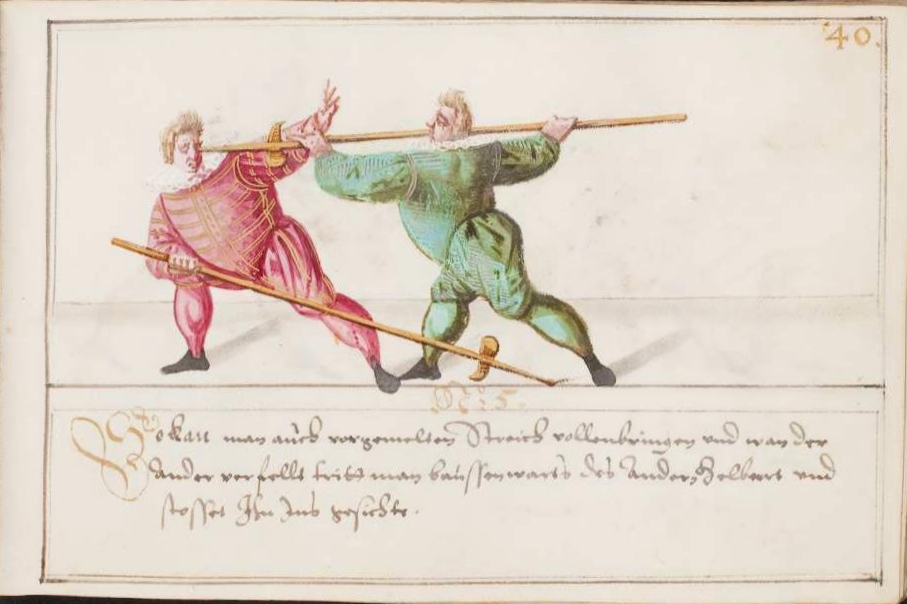 40.
No: 5.
So kan man auch vorgemelten Streich vollenbringen und wan der
ander verfellt tritt man baussenwarts des andern Helbart und
stosset Ihn Ins gesichte.